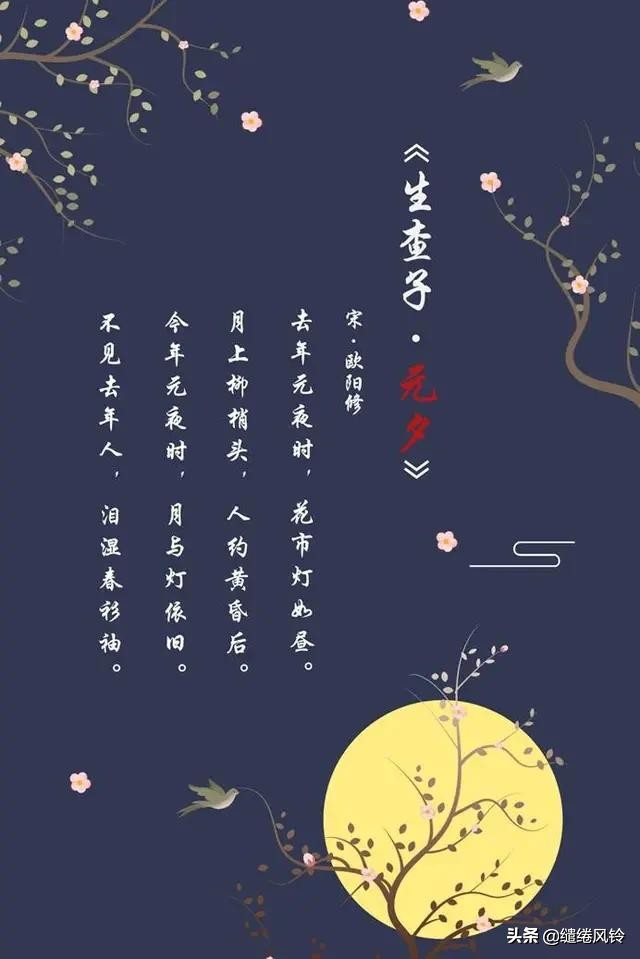 《生查子·元夕》
宋·欧阳修
去年元夜时，花市灯如昼。
月上柳梢头，人约黄昏后。
今年元夜时，月与灯依旧。
不见去年人，泪湿春衫袖。
头条 @缱绻风铃